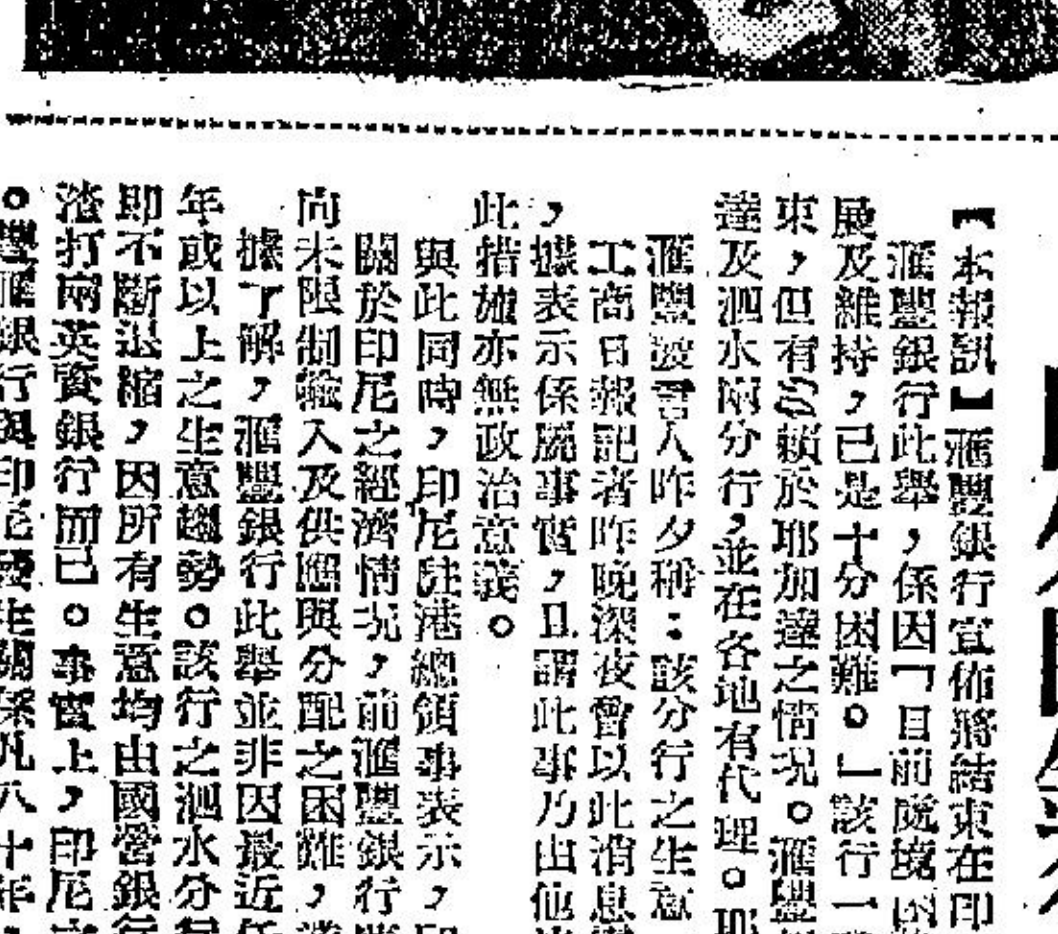 【本報訊】滙豐銀行宣佈將結束在印
滙豐銀行此舉,係因「目前處境困
展及維持,已是十分困難。」該行一
束,但有仍賴於耶加達之情况。滙豐
達及泗水兩分行,並在各地有代理。耶
滙豐發言人昨夕稱:該分行之生意
工商日報記者昨晚深夜曾以此消息
,據表示係屬事實,且謂此事乃由他
此措施亦無政治意義。
與此同時,印尼駐港總領事表示,印
關於印尼之經濟情况,前滙豐銀行
尚未限制輸入及供應與分配之困難,
據了解,滙豐銀行此舉並非因最近
年或以上之生意趨勢。該行之泗水分行
即不斷退縮,因所有生意均由國營銀行
渣打兩英資銀行而已。事實上,印尼
。豐滙銀行與印尼發生關係凡八十年,